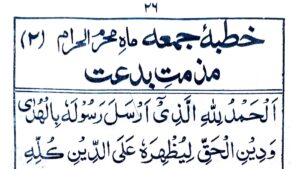 ۲۶
خطبۂ جمعہ ماہ محرم الحرام (۲)
مذمتِ بدعت
اَلْحَمْدُ لِلّٰهِ الَّذِیْٓ اَرْسَلَ رَسُوْلَهٗ بِالْهُدٰی
وَدِیْنِ الْحَقِّ لِیُظْهِرَهٗ عَلَی الدِّیْنِ كُلِّهٖ